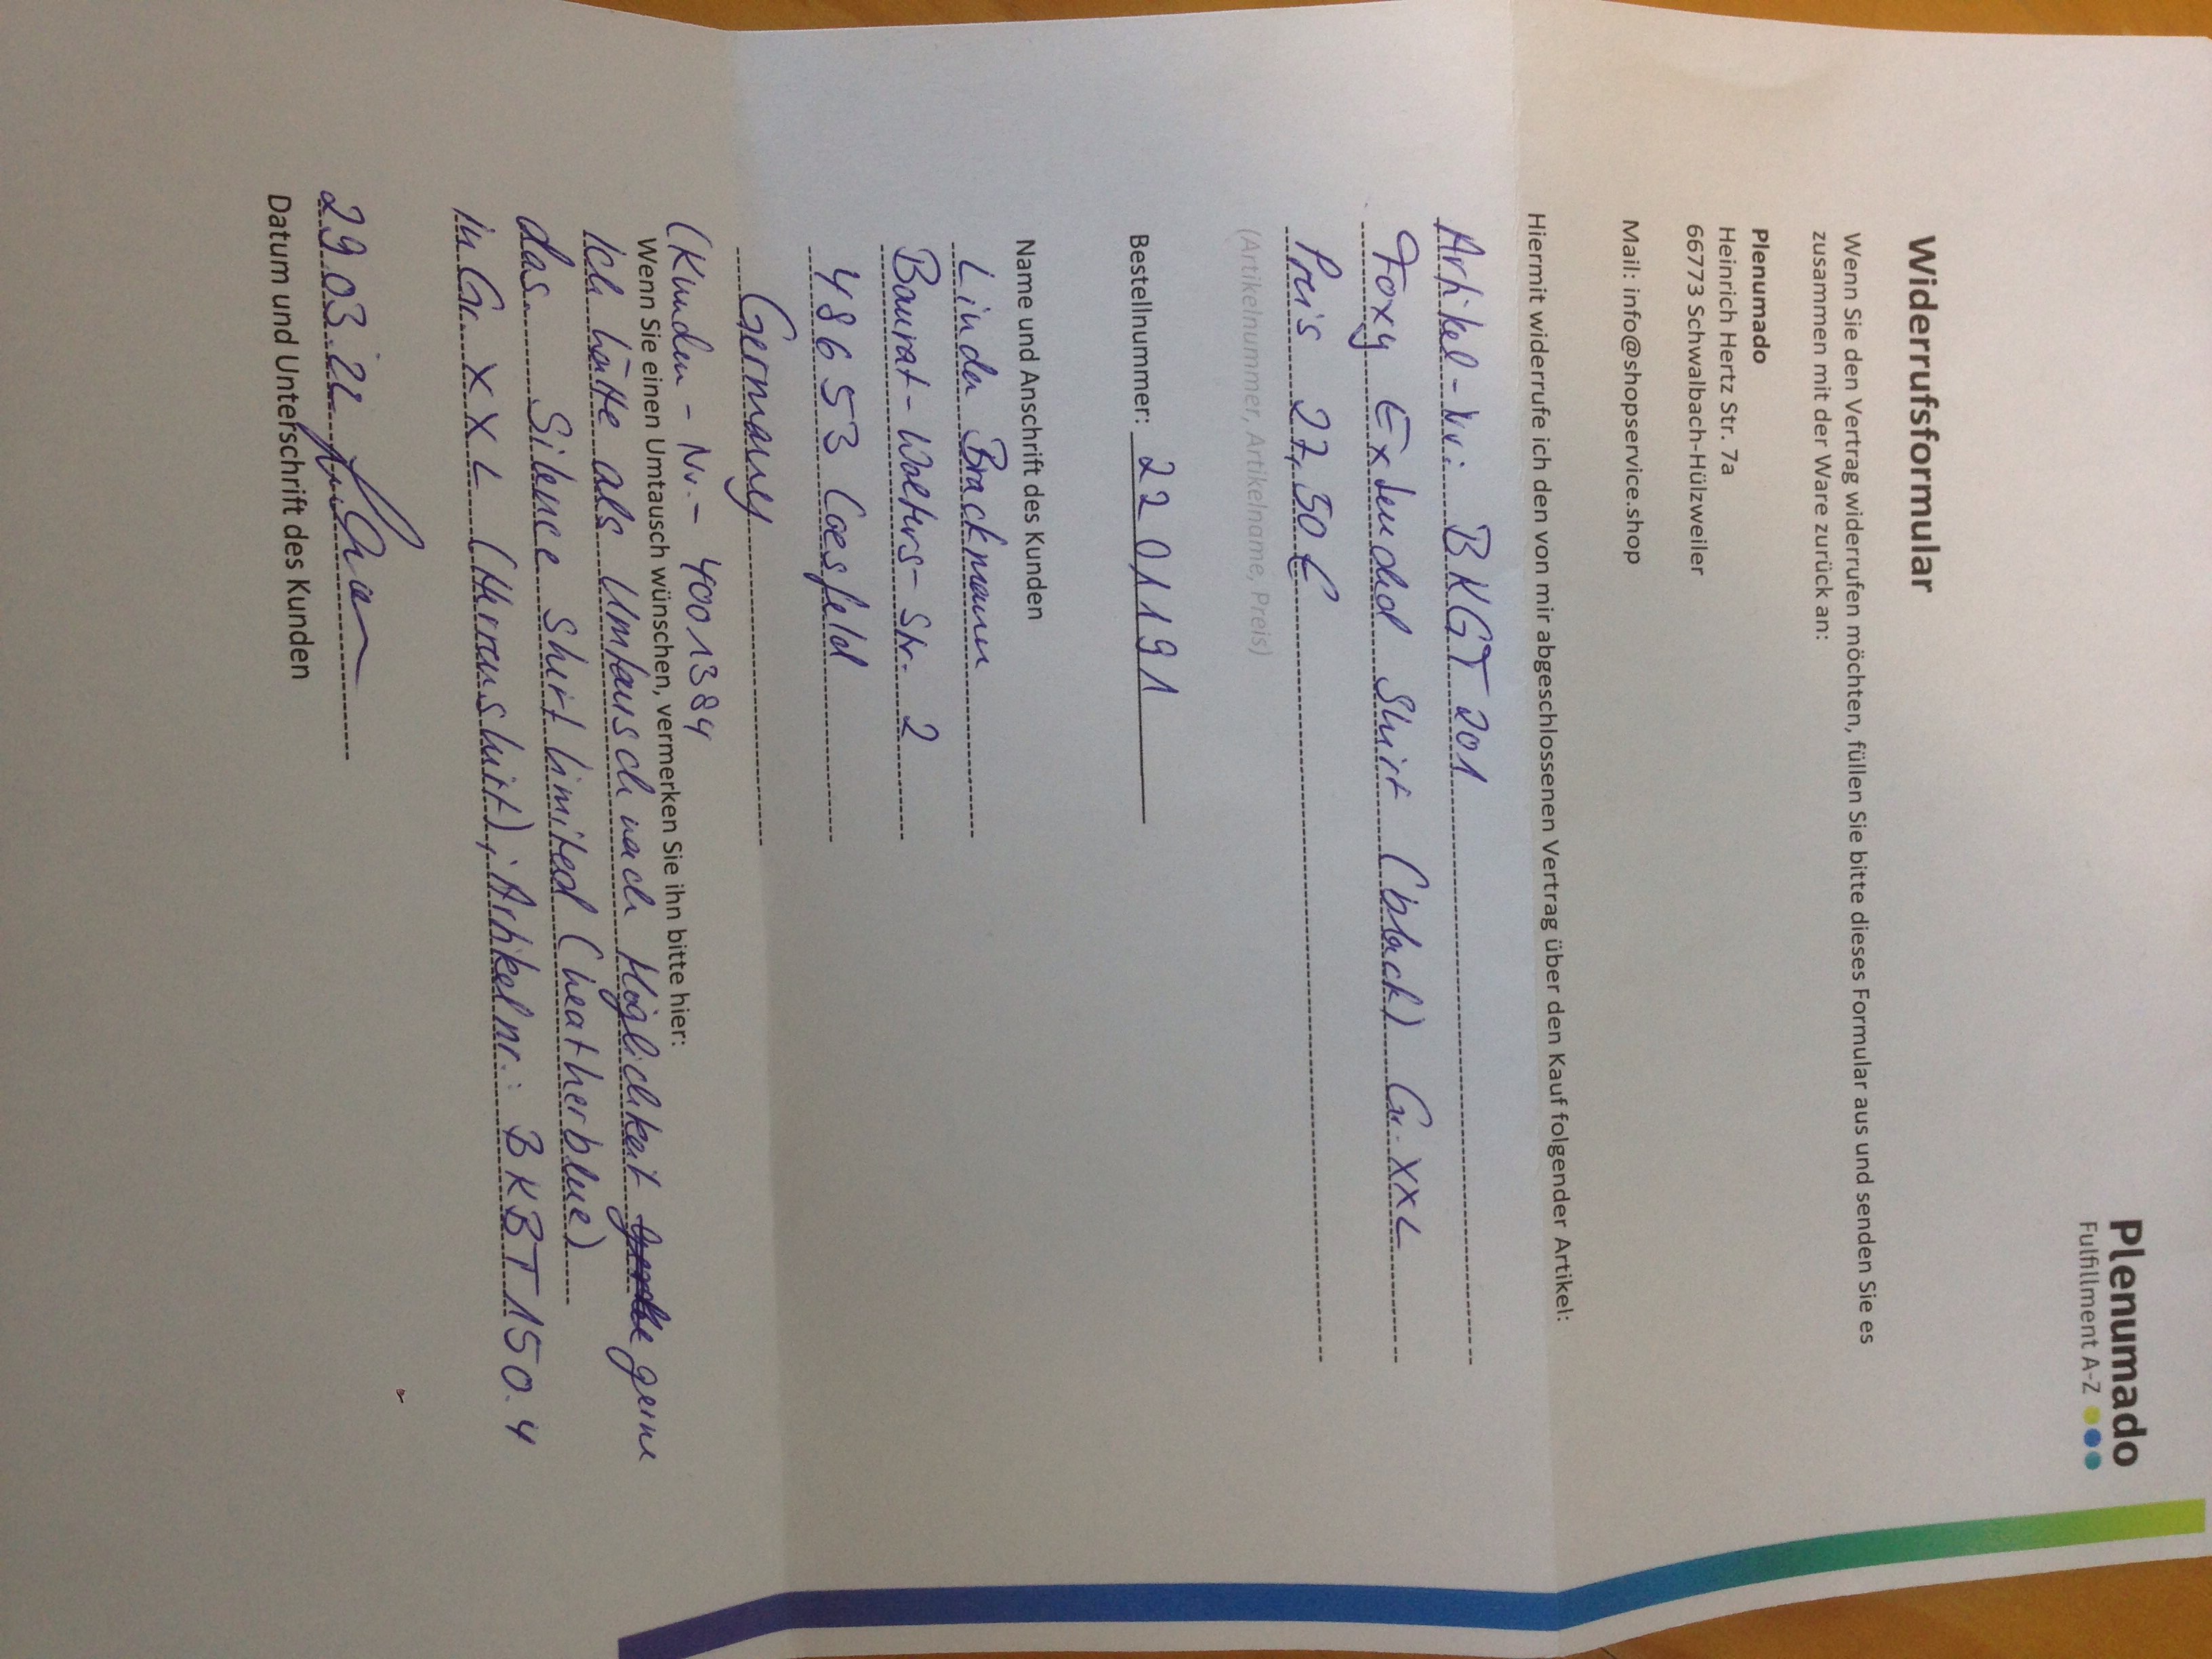 Plenumado
Fulfillment A-Z
Widerrufsformular
Wenn Sie den Vertrag widerrufen möchten, füllen Sie bitte dieses Formular aus und senden Sie es
zusammen mit der Ware zurück an:
Plenumado
Heinrich Hertz Str. 7a
66773 Schwalbach-Hülzweiler
Mail: info@shopservice.shop
Hiermit widerrufe ich den von mir abgeschlossenen Vertrag über den Kauf folgender Artikel:
Artikel-Nr.: BKGT201
Foxy Extended Shirt (black) Gr. XXL
Preis 27,50 €
(Artikelnummer, Artikelname, Preis)
Bestellnummer: 2201191
Name und Anschrift des Kunden
Linda Brackmann
Baurat-Wolters-Str. 2
48653 Coesfeld
Germany
(Kunden-Nr.- 4001384
Wenn Sie einen Umtausch wünschen, vermerken Sie ihn bitte hier:
Ich hätte als Umtausch nach Möglichkeit gerne
das Silence Shirt limited (heatherblue)
in Gr. XXL (Herrenshirt), Artikelnr.: BKBT150.4
29.03.22
Datum und Unterschrift des Kunden